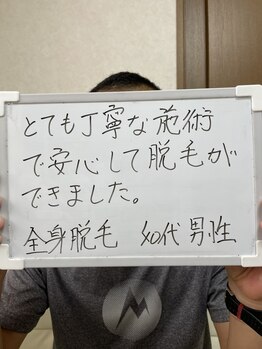 とても丁寧な施術
で安心して脱毛が
できました。
全身脱毛 40代 男性